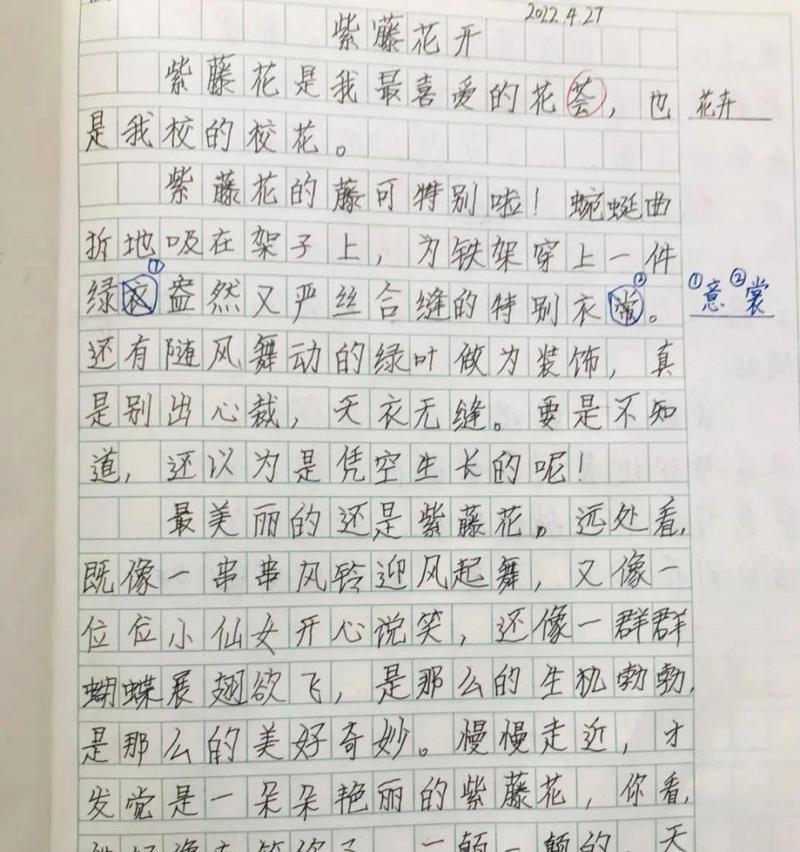 2022.4.27
紫藤花开
紫藤花是我最喜爱的花荟，也 花卉
是我校的校花。
紫藤花的藤可特别啦！蜿蜒曲
折地吸在架子上，为铁架穿上一件
①
绿衣盎然又严丝合缝的特别衣常。 ①意②裳
②
还有随风舞动的绿叶做为装饰，真
是别出心裁，天衣无缝。要是不知
道，还以为是凭空生长的呢！
最美丽的还是紫藤花。远处看，
既像一串串风铃迎风起舞，又像一
位位小仙女开心说笑，还像一群群
蝴蝶展翅欲飞，是那么的生机勃勃，
是那么的美好奇妙。慢慢走近，才
发觉是一朵朵艳丽的紫藤花，你看，
一颗一颗的，天